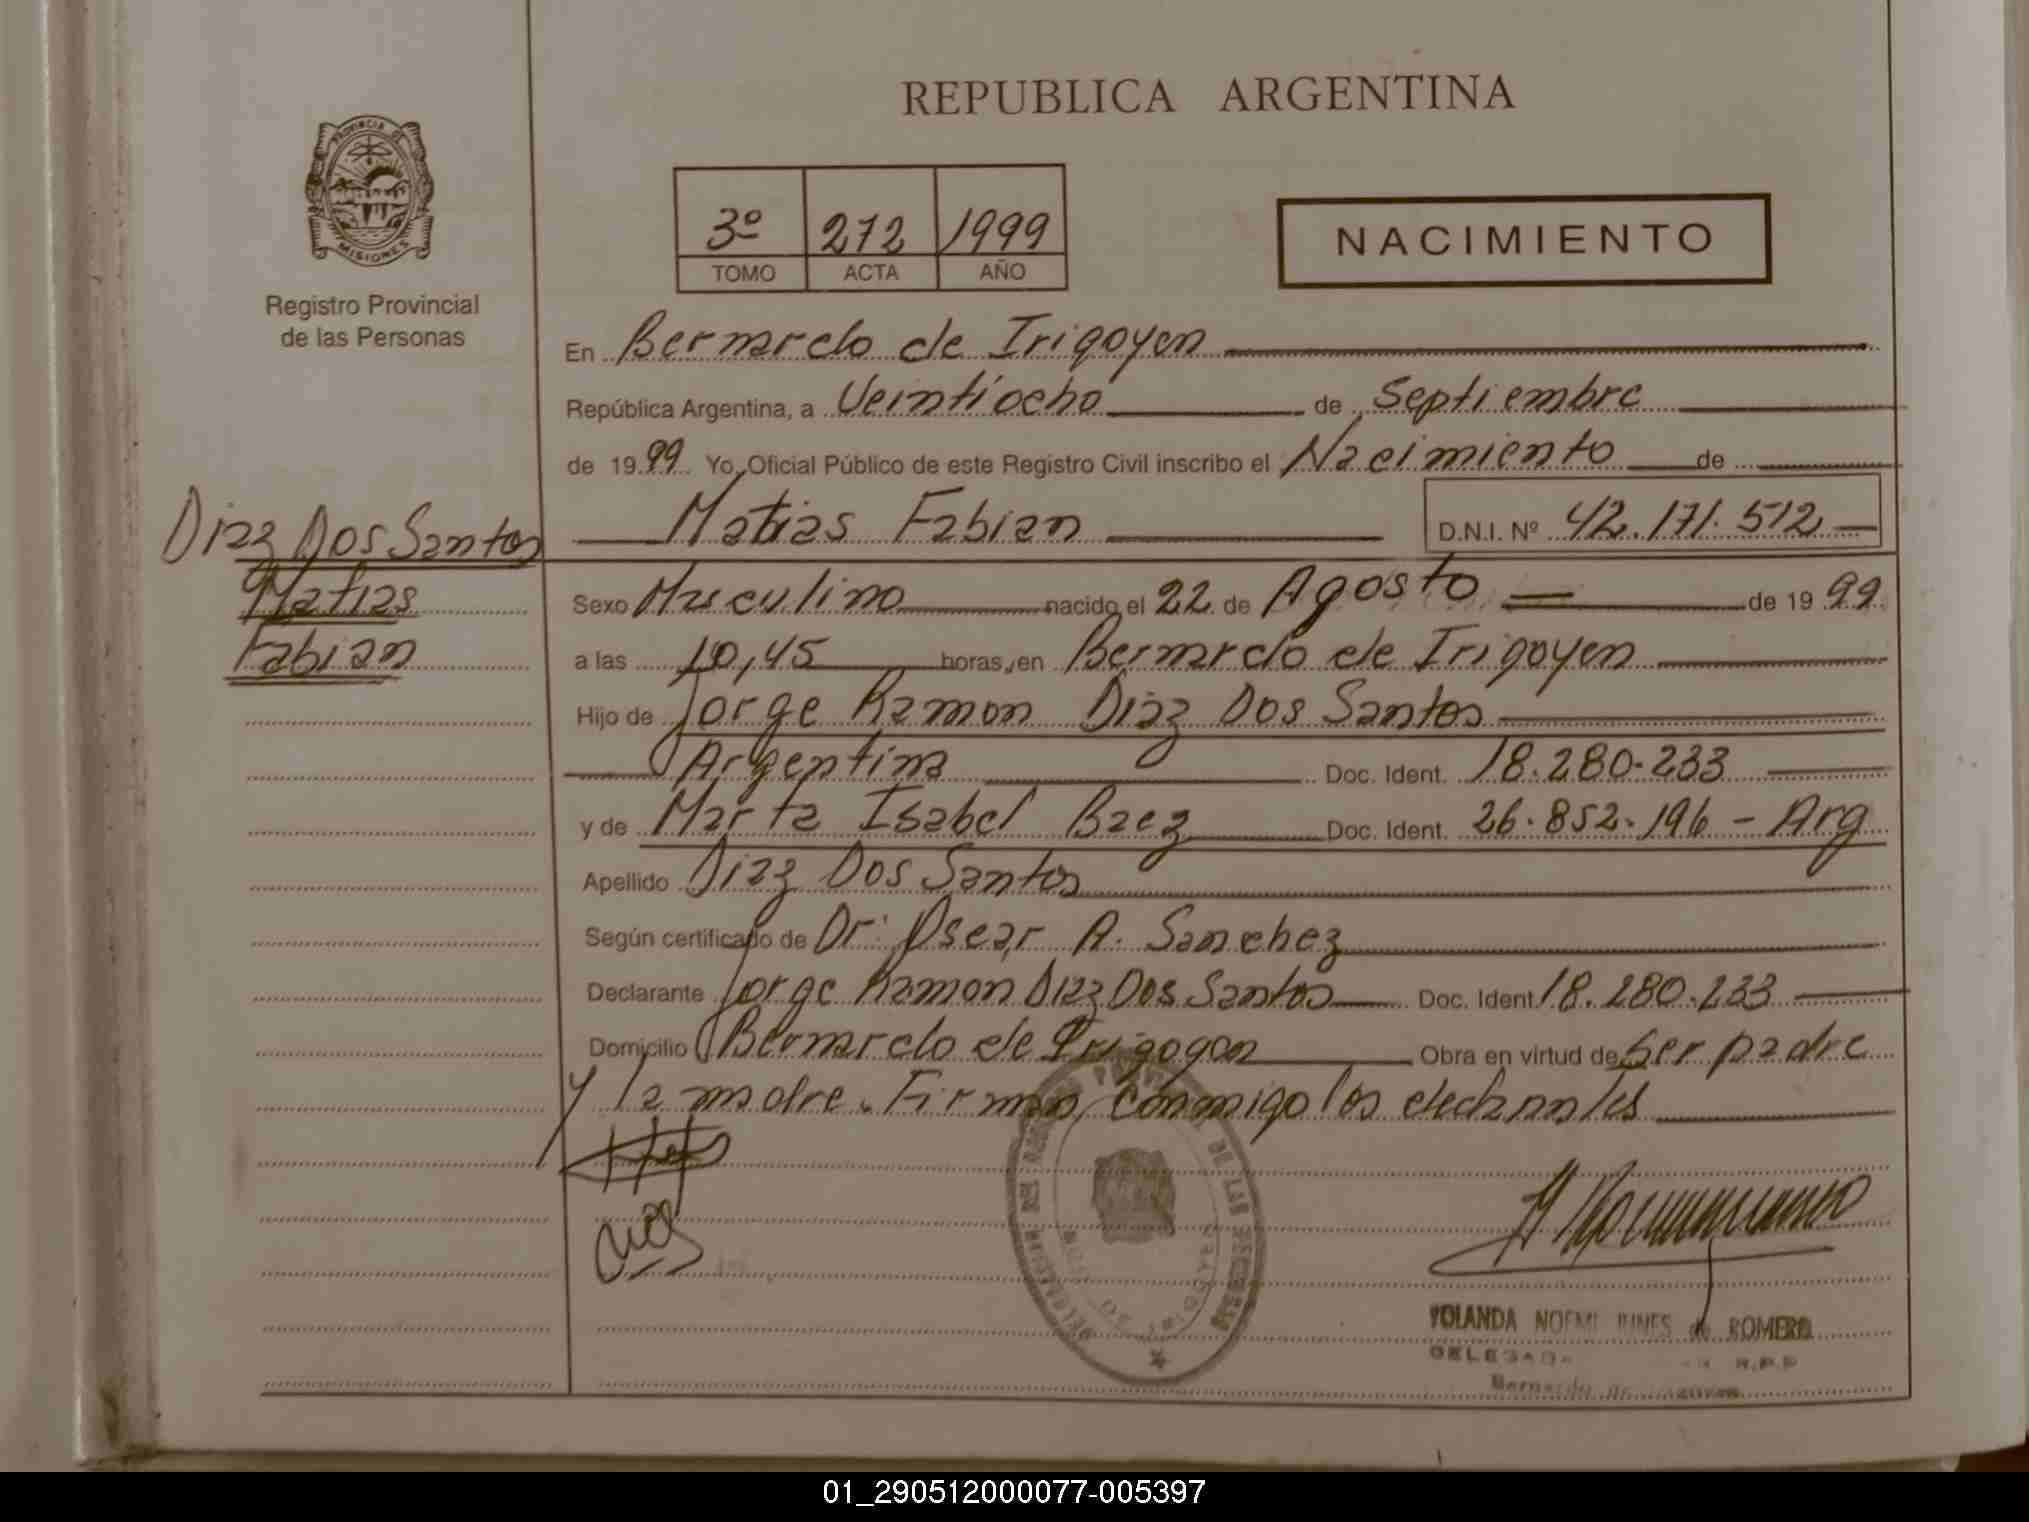 REPUBLICA ARGENTINA
PROVINCIA DE
MISIONES
Registro Provincial
de las Personas
3º 272 1999
TOMO ACTA AÑO
NACIMIENTO
En Bernardo de Irigoyen
República Argentina, a Veintiocho de Septiembre
de 1999 Yo, Oficial Público de este Registro Civil inscribo el Nacimiento de
Matias Fabian D.N.I. Nº 42.171.512
Diaz Dos Santos
Matias
Fabian
Sexo Masculino nacido el 22 de Agosto de 1999
a las 10,45 horas, en Bernardo de Irigoyen
Hijo de Jorge Ramon Diaz Dos Santos
Argentina Doc. Ident. 18.280.233
y de Marta Isabel Baez Doc. Ident. 26.852.196 - Arg
Apellido Diaz Dos Santos
Según certificado de Dr: Oscar A. Sanchez
Declarante Jorge Ramon Diaz Dos Santos Doc. Ident 18.280.233
Domicilio Bernardo de Irigoyen Obra en virtud de Ser padre
y la madre. Firman conmigo los
DE LAS PERSONAS
DE IRIGOYEN
YOLANDA NOEMI de ROMERO
DELEGADA R.P.P
Bernardo de
01_290512000077-005397